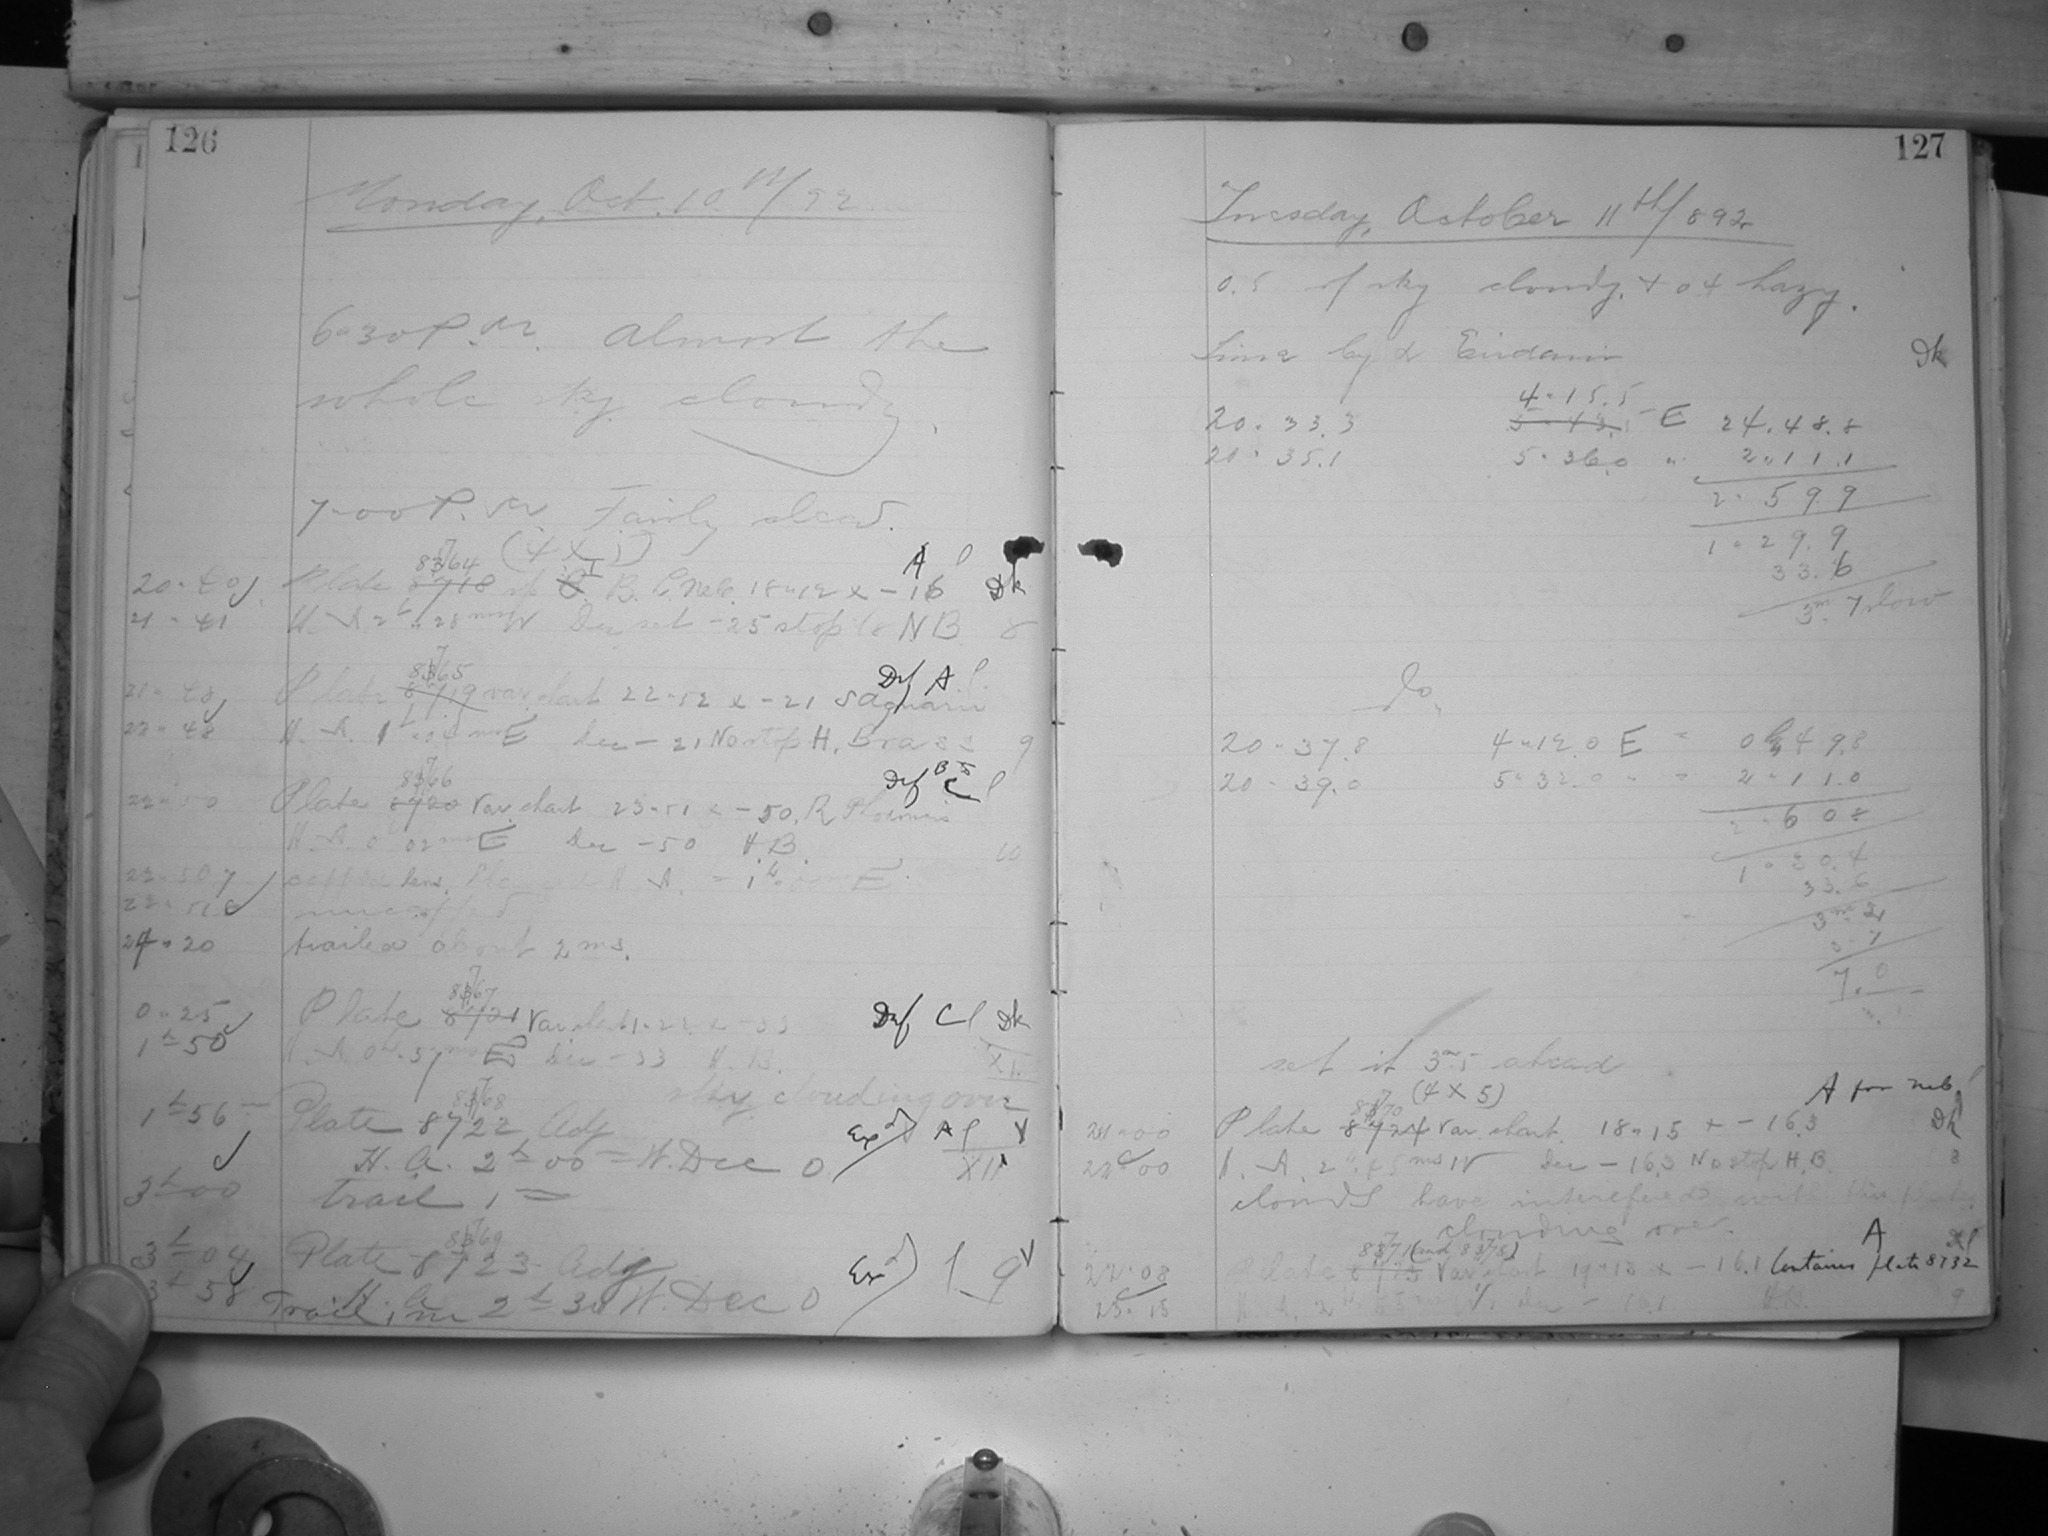 126
Monday, Oct. 10th/92
6-30 P.M. Almost the
whole sky cloudy.
7-00 P.M. Fairly clear.
(4 X 5)
8764
A
Plate 8718 B. C. Neb. 18-12 x -16 Dk
21-41 H. A. 2h-28ms W Dec set -25 stop NB 8
8765
Def A
21-48 Plate 8719 var. chart 22-52 x -21 S Aquarii
22-48 H. A. E Dec -21 No stop H, Brass 9
8766
Def C
22-50 Plate 8720 Var. chart 23-51 x -50, R Phoenicis
H. A. 0 02ms E Dec -50 H.B. 10
capped lens. H. A. E.
uncapped
24-20 trailed about 2ms.
8767
0-25 Plate 8721 Var. chart 1-22 x -33 Def C Dk
1h-50 H. A. 0h-37ms E Dec -33 H. B. XI.
sky clouding over
8768
1h-56m Plate 8722 Adj Exp'd A
H. A. 2h-00m W. Dec 0 XII
3h-00 trail 1m
8769
3h-04 Plate 8723 Adj Exp'd
3h-58 H. A.
Trail, 1m 2h-30 W. Dec 0
127
Tuesday, October 11th/892
0.5 of sky cloudy, + 0.4 hazy.
Time by Eridani Dk
4-15.5
20-33.3 5-43.1 E 24.48.8
20-35.1 5-36.0 " 2-11.1
2-59 9
1-29.9
33.6
3m.7 slow
Do.
20-37.8 4-12.0 E 0 49.8
20-39.0 5-32.0 " 2-11.0
2-60 8
1-30.4
33.6
3.7
7.0
set it 3m.5 ahead
(4 X 5)
8770
A for neb.
21-00 Plate 8724 Var. chart. 18-15 x -16.3 Dk
22-00 H. A. 2h.45ms W Dec -16.3 No stop H, B. 8
clouds have interefered with this plate.
clouding over.
8771 (and 8778)
A
22-08 Plate 8725 Var. chart 19-13 x -16.1 Contains plate 8732
23-15 H. A. 2h W. Dec -16.1 H.B. 9